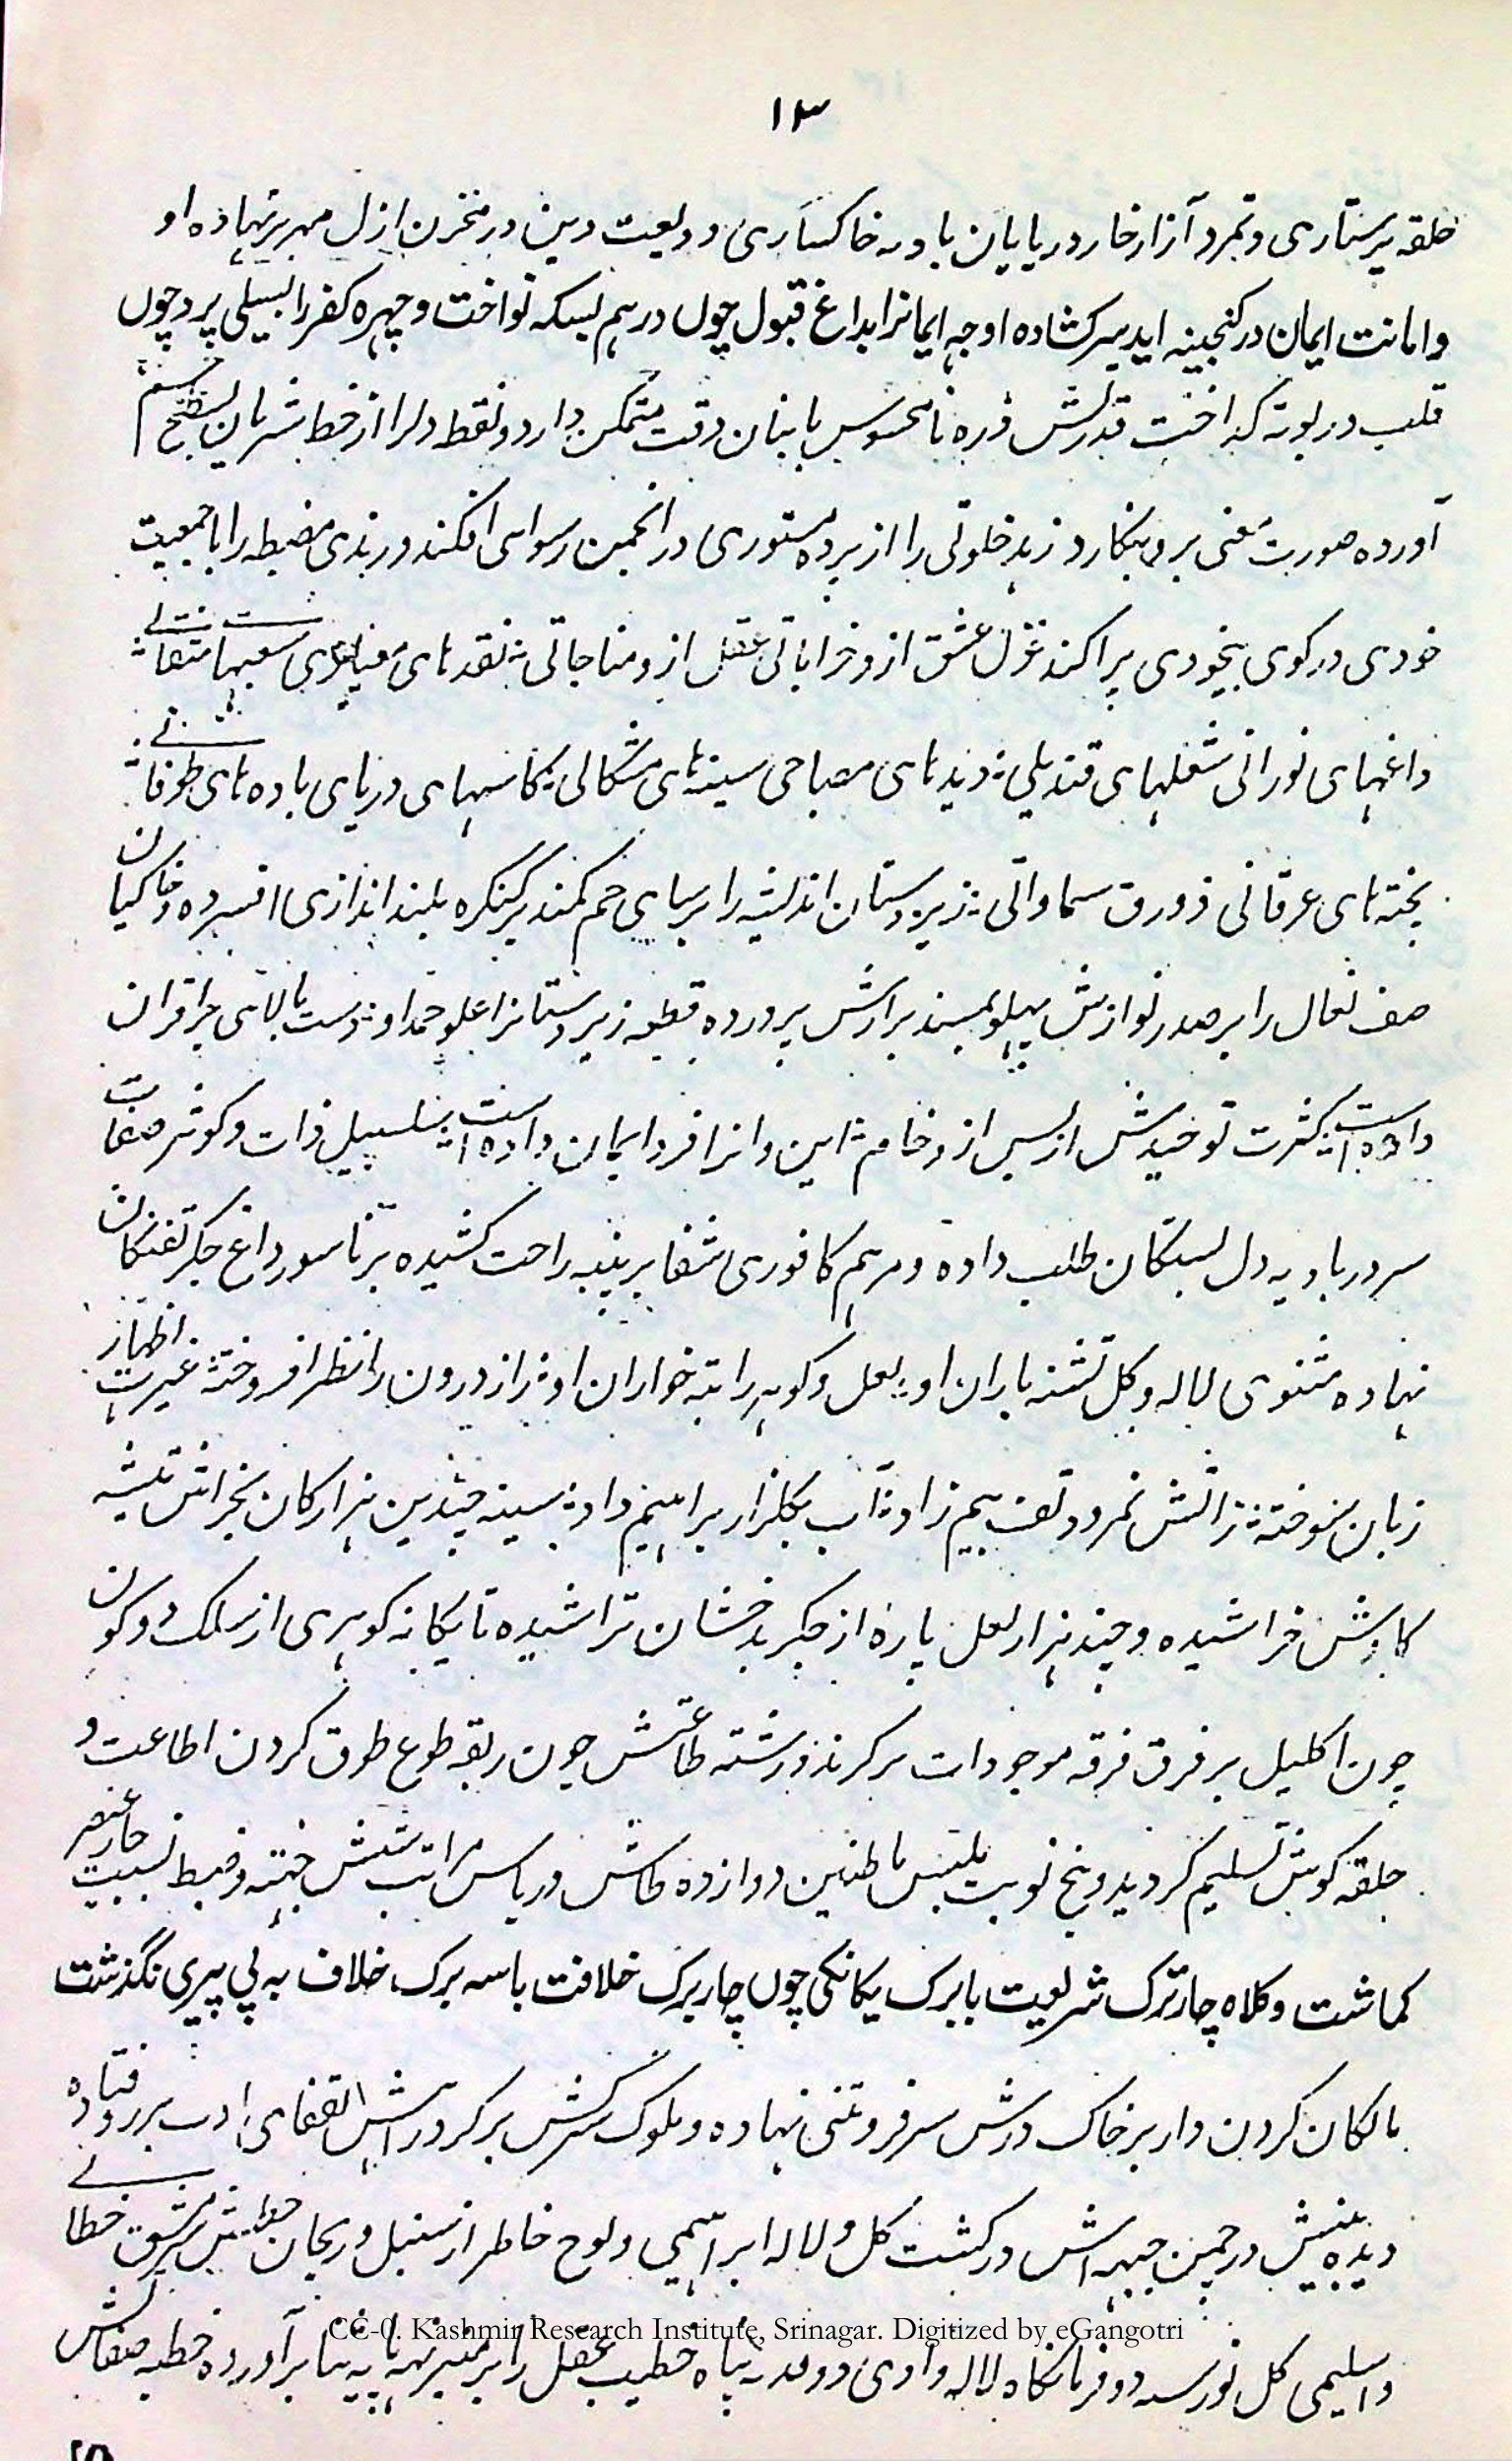 ۱۳
حلقه پرستاری و تمرد آزار خار در پایان بادیه خاکساری ودیعت دین در مخزن ازل مهر بر نهاده او
و امانت ایمان در گنجینه ابد سر کشاده او جه ایمانرا بداغ قبول چوں درهم بسکه نواخت و چهره کفر را بسیلی پر دچوں
قلب در بوته گداخت قدرتش ذره نامحسوس با بنان دقت متمکن دارد و نقط دلرا از خط شریان
آورده صورت معنی برو بنگارد زهد خلوتی را از پرده مستوری در انجمن رسوای افکند و رندی را با جمعیت
خودی در کوی بیخودی پراکند غزل عشق ازو خراباتی عقل ازو مناجاتی نقد های
داغهای نورانی شعلهای قندیلی دیدهای مصباحی سینه های مشکاتی کاسهای دریای باده های طوفا
پخته های عرفانی زورق سماواتی زیردستان اندیشه را بر پای خم کمند بر کنگره بلند اندازی افسرده و خاکیان
صف نعال را بر صدر نوازش پهلو بمسند برارش پرورده قطعه زیردستانرا علو حمد او دست بالای
داده است کثرت توحیدش از بس ازو خامش این و انرا فرد ایمان داده است سلسبیل ذات و کوثر صفات
سر در بادیه دل بستگان طلب داده و مرهم کافوری شفا بر پنبه راحت کشیده بر ناسور داغ جگر تفتگان
نهاده مثنوی لاله و گل تشنه باران او لعل و گوهر راتبه خواران او راز درون را نظر افروخته غیرت اظهار
زبان سوخته ز آتش نمرود تف بیم زاد آب بگلزار براهیم داد سینه چندین هزار کان بخراش تیشه
کاوش خراشیده و چند هزار لعل پاره از جگر بدخشان تراشیده تا یگانه گوهری از سلک دو کون
چون اکلیل بر فرق فرقه موجودات بر کرند و رشته طاعتش چون ربقه طوع طوق گردن اطاعت و
حلقه گوش تسلیم گردید و پنج نوبت با طنین دوازده طاش در پاس مراتب شش جهته و ضبط نسبت چار عنصر
کماشت و کلاه چار ترک شریعت با برک یگانگی چوں چار برک خلافت با سه برک خلاف به پی پیری نگذشت
مالکان گردن دار بر خاک درش سر فروتنی نهاده و ملوک سرکش بر کرد راهش القفای ادب بر رو فتاده
دیده بینش در چمن جبهه اش در گشت گل و لاله ابراهیمی و لوح خاطر از سنبل و ریحان خطش مشق خطا
و اسلیمی گل نورسه دو فرمانگاه لاله وادی دو پناه خطیب محفل را بر منبر نه پایه بنا برآورده خطبه صفاتش
CC-0. Kashmir Research Institute, Srinagar. Digitized by eGangotri